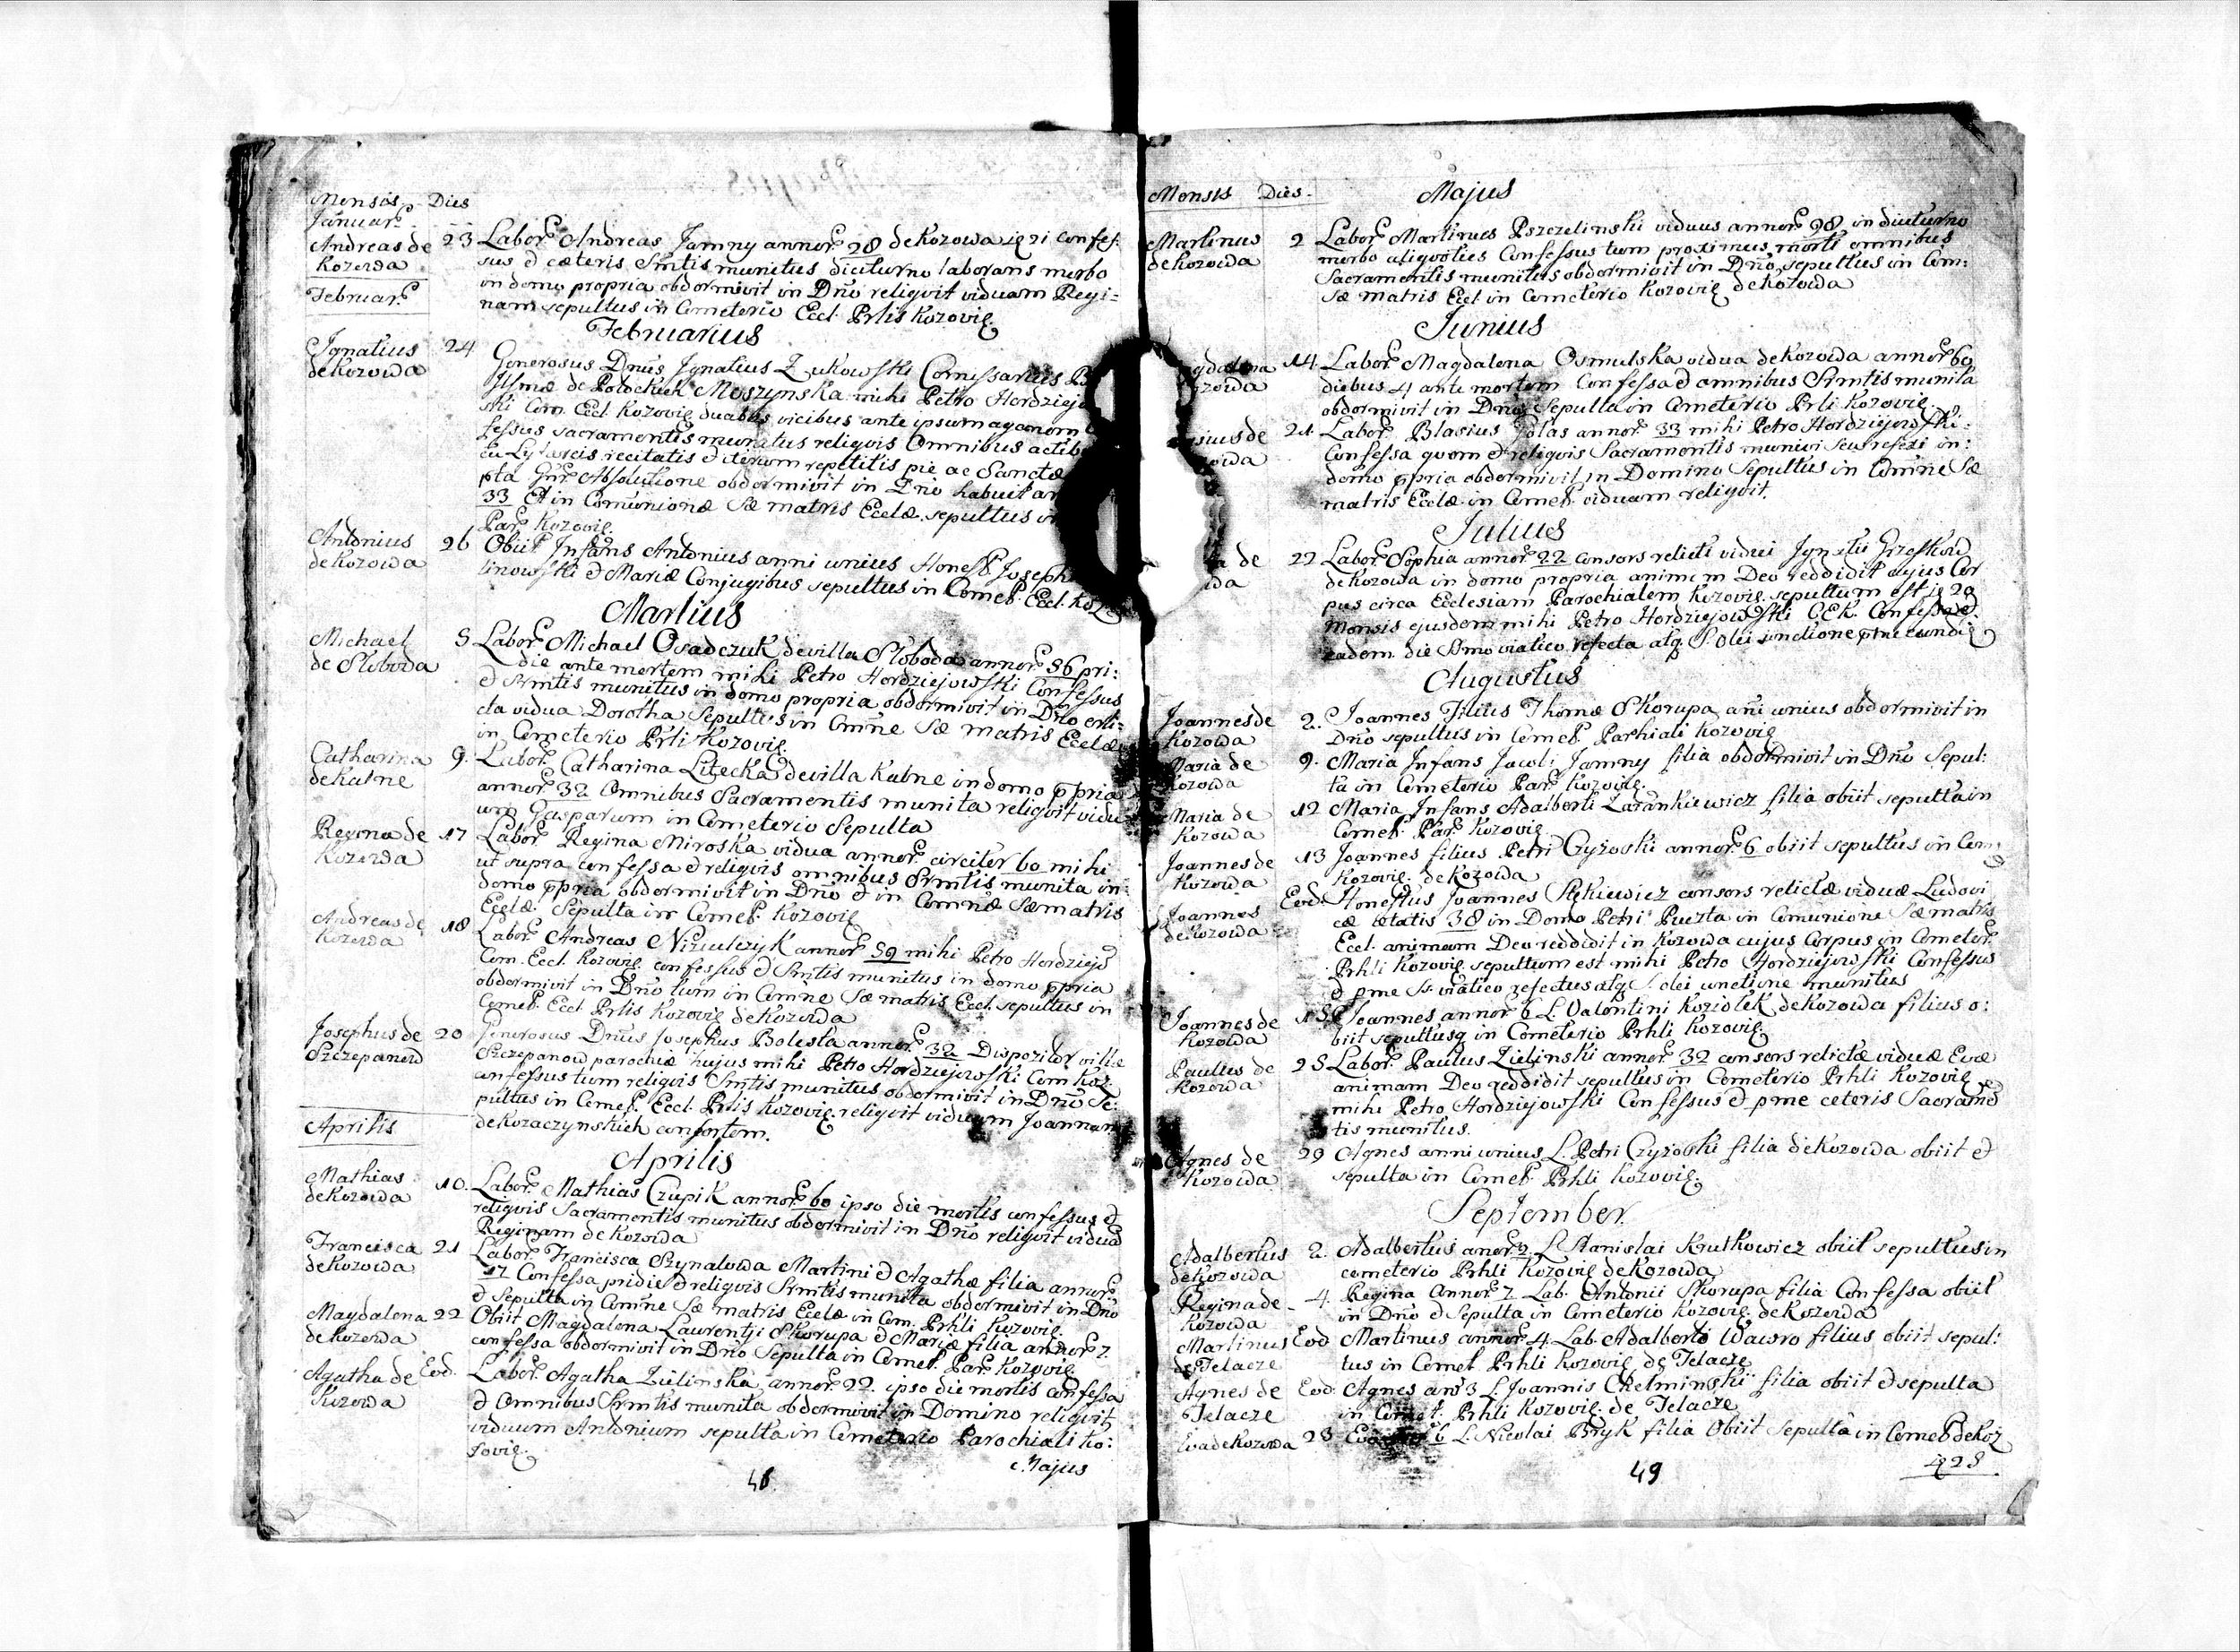 Mensis Dies
Januar.
Andreas de Kozowa 23 Labor. Andreas Jamny annor. 28 de Kozowa ię 21 confes:
sus & cæteris Smtis munitus diuturno laborans morbo
in domo propria obdormivit in Dno reliqvit viduam Regi=
nam sepultus in Cemeterio Eccl. Prlis Kozovię
Februar.
Februarius
Ignatius de Kozowa 24 Generosus Dnus Ignatius Zukowski Comissarius
Illmæ de Potockich Moszynska mihi Petro Hordziejo
ski Com. Eccl. Kozovię duabus vicibus ante ipsum agonem
fessus sacramentis munitus reliqvis Omnibus
recitatis & iterum repetitis pie ac Sancte
pta Gnr. Absolutione obdormivit in Dno habuit
33 Et in Comunione Sæ matris Eclæ sepultus in
Par. Kozovię.
Antonius de Kozowa 26 Obiit Infans Antonius anni unius Honest. Joseph
linowski & Mariæ Conjugibus sepultus in Cemet. Eccl. Koz
Martius
Michael de Sloboda 5 Labor. Michael Osadczuk de villa Sloboda annor. 86 pri:
die ante mortem mihi Petro Hordziejowski Confessus
& Srmtis munitus in domo propria obdormivit in Dno
cta vidua Dorotha Sepultus in Comne Sæ matris Eclæ
in Cemeterio Prli Kozovię.
Catharina de Kalne 9. Labor. Catharina Litecka de villa Kalne in domo ppria
annor. 32 Omnibus Sacramentis munita reliqvit vidu
um Gasparum in Cemeterio Sepulta
Regina de Kozowa 17 Labor. Regina Miroska vidua annor. circiter 60 mihi
ut supra confessa & reliqvis omnibus Srmtis munita in
domo ppria obdormivit in Dno & in Comne Sæ matris
Eclæ Sepulta in Cemet. Kozovię
Andreas de Kozowa 18 Labor. Andreas annor. 59 mihi Petro Hordziejo
Com. Eccl. Kozovię confessus & Smtis munitus in domo ppria
obdormivit in Dno tum in Comne Sæ matris Eccl. sepultus in
Cemet. Eccl. Prlis Kozovię de Kozowa
Josephus de Szczepanow 20 Generosus Dnus Josephus Bolesta annor. 32 Dispozitor villæ
Szczepanow parochiæ hujus mihi Petro Hordziejowski Com Koz.
confessus tum reliqvis Smtis munitus obdormivit in Dno Se:
pultus in Cemet. Eccl. Prlis Kozovię reliqvit viduam Joannam
de Kozaczynskich consortem.
Aprilis
Aprilis
Mathias de Kozowa 10. Labor. Mathias Czupik annor. 60 ipso die mortis confessus &
reliqvis Sacramentis munitus obdormivit in Dno reliqvit vidua
Reginam de Kozowa
Francisca de Kozowa 21 Labor. Francisca Szynalowa Martini & Agathæ filia annor.
17 Confessa pridie & reliqvis Srmtis munita obdormivit in Dno
& Sepulta in Comne Sæ matris Eclæ in Cem. Prhli Kozovię.
Magdalena de Kozowa 22 Obiit Magdalena Laurentji Skorupa & Mariæ filia annor. 7.
confessa obdormivit in Dno Sepulta in Cemet. Par. Kozovię
Agatha de Kozowa Eod. Labor. Agatha Zielinska annor. 22. ipso die mortis confessa
& Omnibus Srmtis munita obdormivit in Domino reliqvit
viduum Antonium sepulta in Cemeterio Parochiali Ko:
zovię.
Majus
48.
Mensis Dies.
Majus
Martinus de Kozowa 2 Labor. Martinus Pszczelinski viduus annor. 98 in diuturno
morbo aliqvoties Confessus tum proximus morti omnibus
Sacramentis munitus obdormivit in Dno, sepultus in Com:
Sæ matris Eccl. in Cemeterio Kozovię de Kozowa
Junius
gdalena zowa 14. Labor. Magdalena Osmulska vidua de Kozowa annor. 60
diebus 4 ante mortem Confessa & omnibus Srmtis munita
obdormivit in Dno, Sepulta in Cemeterio Prli Kozovię.
sius de owa 21. Labor. Blasius Golas annor. 33 mihi Petro Hordziejowski
Confessa qvom & reliqvis Sacramentis muniri seu refexi in:
domo ppria obdormivit in Domino Sepultus in Comne Sæ
matris Eclæ in Cemet. viduam reliqvit.
Julius
a de wa 22 Labor. Sophia annor. 22 consors relicti vidui Ignatii Grzeskow
de Kozowa in domo propria animam Deo reddidit cujus Cor
pus circa Ecclesiam Parochialem Kozovię sepultum est ię 20
Mensis ejusdem mihi Petro Hordziejowski C.E.K. Confessa &
eadem die Smo viatico refecta atq. S. Olei unctione
Augustus
Joannes de Kozowa 2. Joannes Filius Thomæ Skorupa ani unius obdormivit in
Dno sepultus in Cemet. Parhiali Kozovię
Maria de Kozowa 9. Maria Infans Jacobi Jamny filia obdormivit in Dno Sepul:
ta in Cemeterio Par. Kozovię.
Maria de Kozowa 12 Maria Infans Adalberti Zarankiewicz filia obiit sepulta in
Cemet. Par. Kozovię
Joannes de Kozowa 13 Joannes filius Petri Czyżoski annor. 6 obiit sepultus in Cem.
Kozovię. de Kozowa
Joannes de Kozowa Eod. Honestus Joannes consors relictæ viduæ Ludovi
cæ ætatis 38 in Domo Petri Puczta in Comunione Sæ matris
Eccl. animam Deo reddidit in Kozowa cujus Corpus in Cemeter.
Prhli Kozovię sepultum est mihi Petro Hordziejowski Confessus
& pme Ss. viatico refectus atq. S. olei unctione munitus
Joannes de Kozowa Joannes annor. 6 L. Valentini Koziołek de Kozowa filius o:
biit sepultusq. in Cemeterio Prhli Kozovię
Paulus de Kozowa 25 Labor. Paulus Zielinski annor. 32 consors relictæ viduæ Evæ
animam Deo reddidit sepultus in Cemeterio Prhli Kozovię
mihi Petro Hordziejowski Confessus & pme ceteris Sacramen
tis munitus.
Agnes de Kozowa 29 Agnes anni unius L. Petri Czyżoski filia de Kozowa obiit &
sepulta in Cemet. Prhli Kozovię.
September
Adalbertus de Kozowa 2. Adalbertus anor. L. Stanislai Krutkowicz obiit sepultus in
cemeterio Prhli Kozovię de Kozowa
Regina de Kozowa 4. Regina Annor. 7 Lab. Antonii Skorupa filia Confessa obiit
in Dno & Sepulta in Cemeterio Kozovię de Kozowa
Martinus de Telacze Eod Martinus annor. 4 Lab. Adalberti Wawro filius obiit sepul:
tus in Cemet. Prhli Kozovię de Telacze
Agnes de Telacze Eod. Agnes an. 3 L. Joannis Chelminski filia obiit & sepulta
in Cemet. Prhli Kozovię. de Telacze
Eva de Kozowa 23 Eva 6 L. Nicolai Bryk filia Obiit Sepulta in Cemet de Koz
49